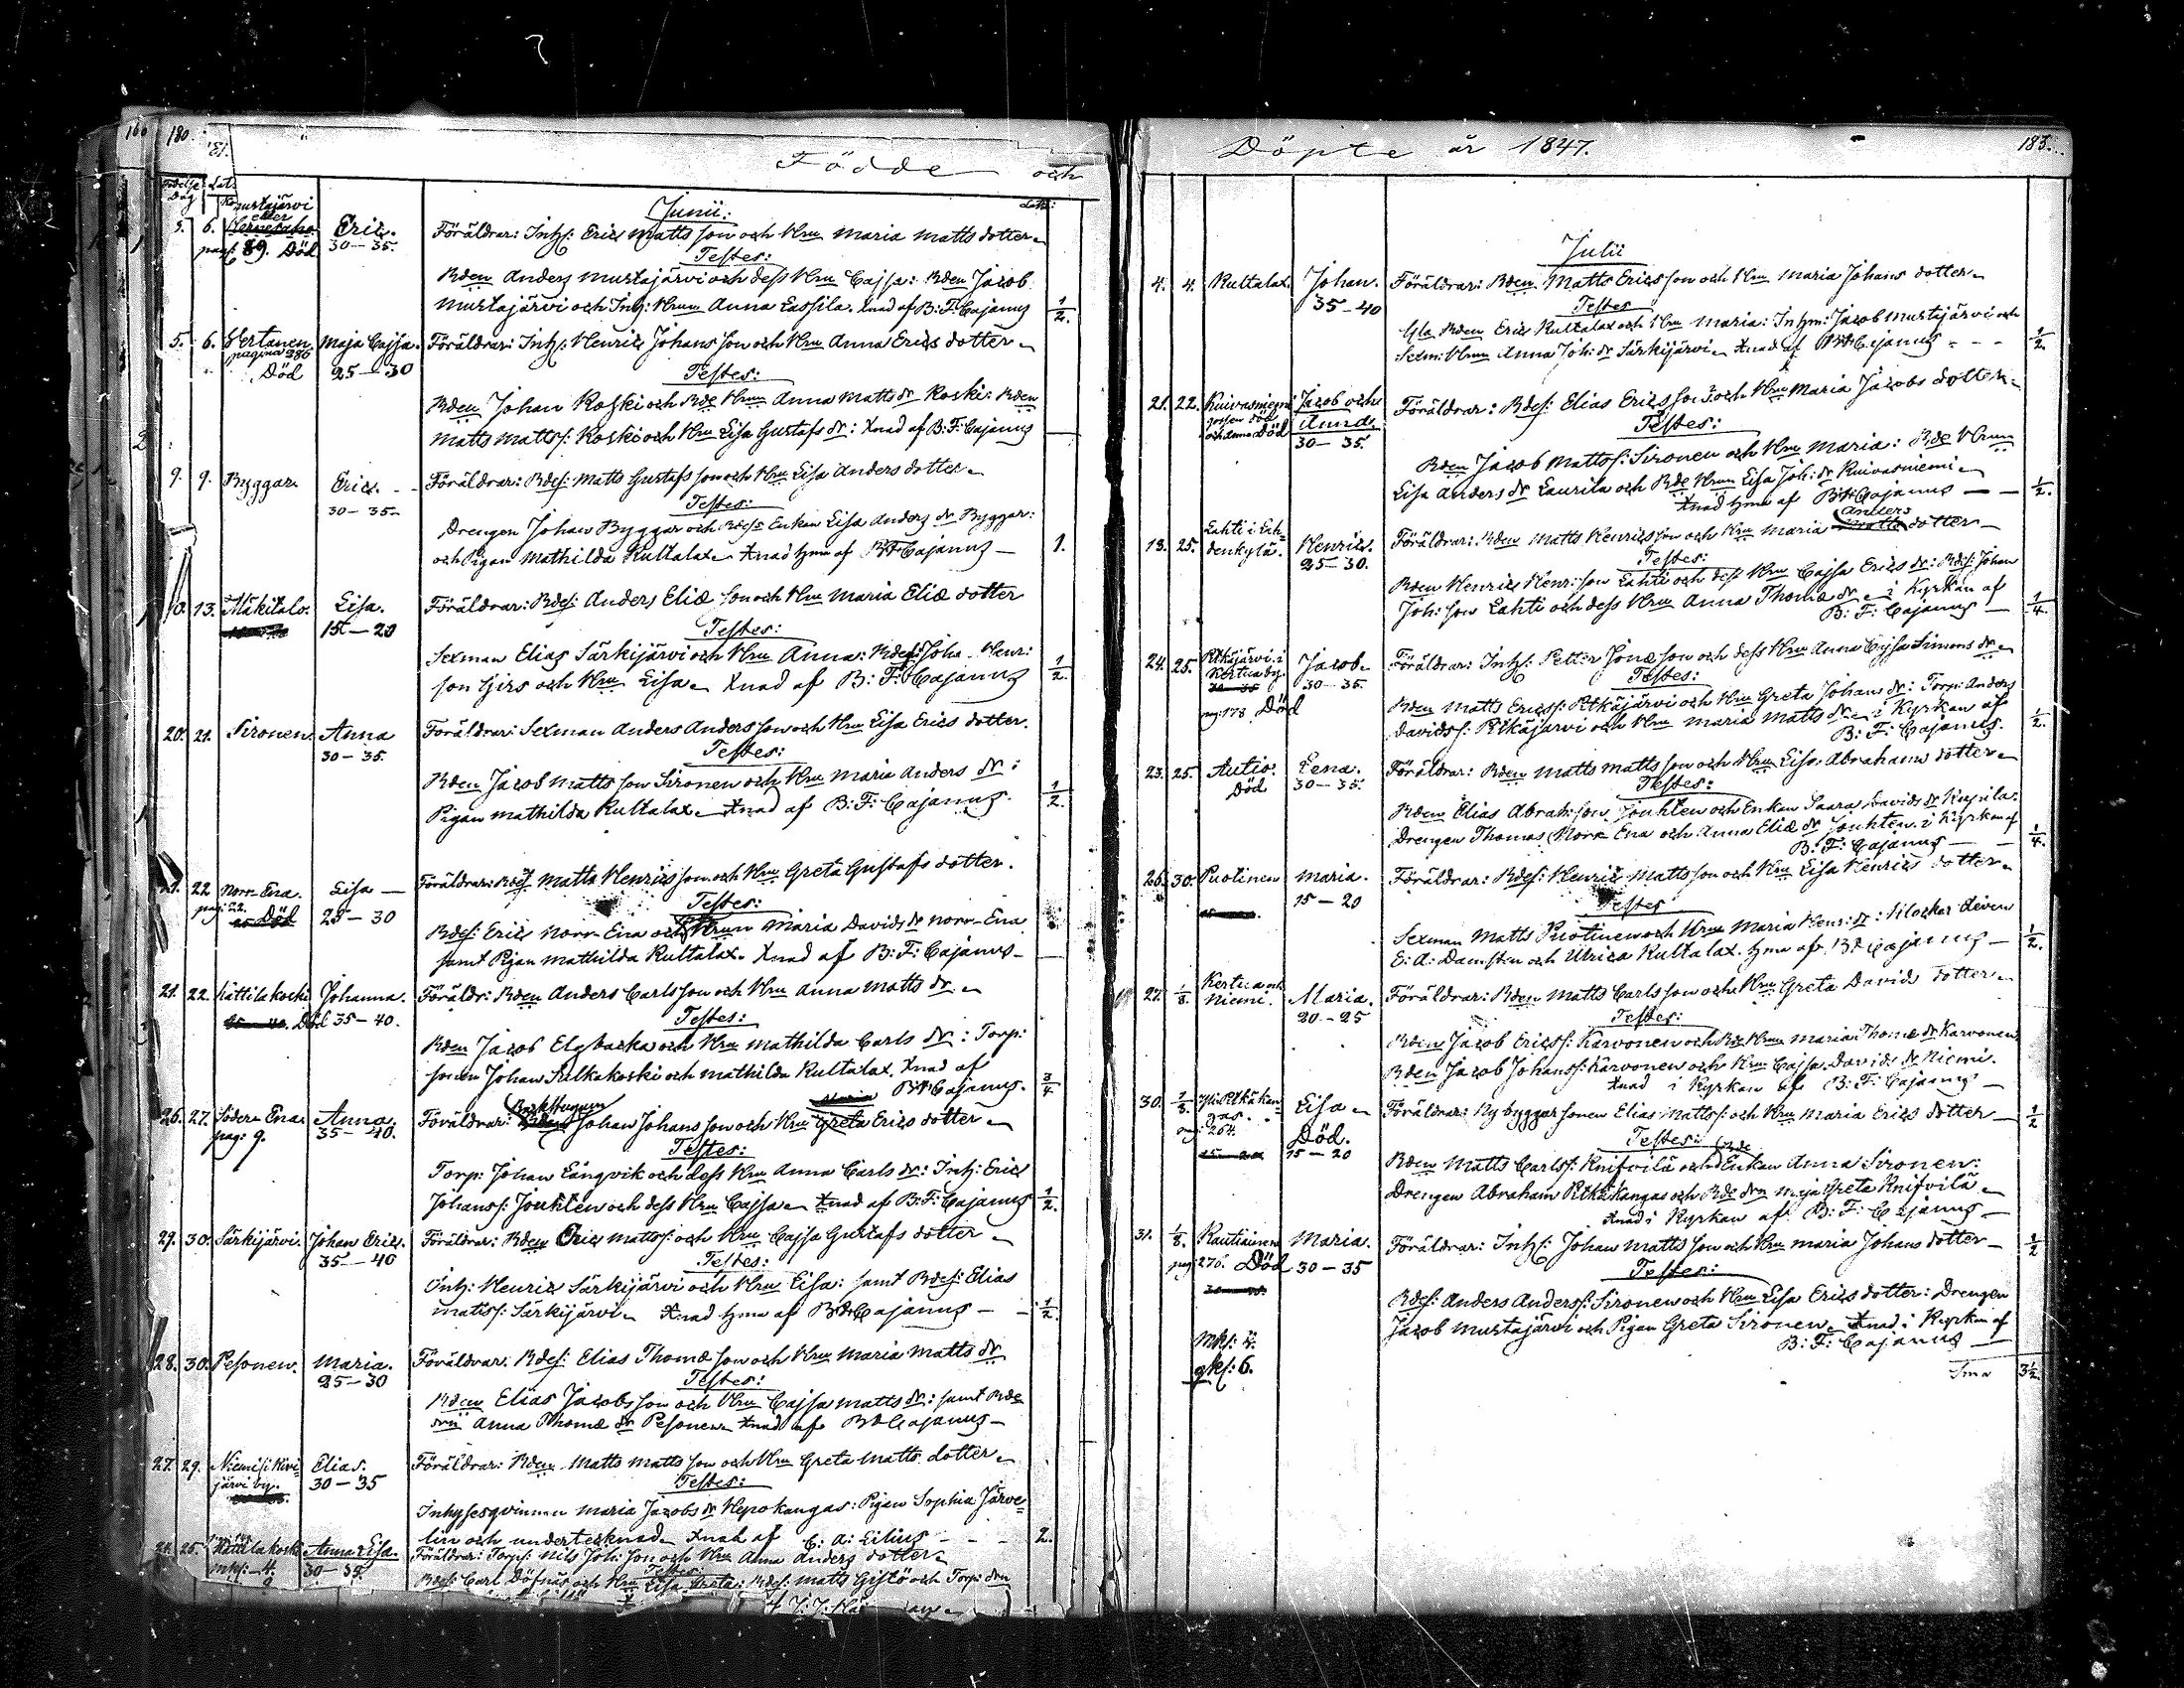 180.
Födde och
Junii:
5. 6. Mustajärvi
eller
pag. 89. Död
Eric.
30-35.
Föräldrar: Inh: Eric Matts son och Hru Maria Matts dotter
Testes:
Bden Anders Mustajärvi och dess Hru Cajsa: Bden Jacob
Mustajärvi och Inh: Hrun Anna Lassila. Xnad af B: F: Cajanus 1/2.
5. 6. Hertanen Maja Cajsa. Föräldrar: Inh: Henric Johans son och Hru Anna Erics dotter
pagina 286
Död 25-30
Testes:
Bden Johan Koski och Bde Hrun Anna Matts dr Koski: Bden
Matts Mattss: Koski och Hru Lisa Gustafs dr: Xnad af B: F: Cajanus
9. 9. Byggar. Eric. Föräldrar: Bdes: Matts Gustafs son och Hru Lisa Anders dotter
30-35.
Testes:
Drengen Johan Byggar och Bdes Enkan Lisa Anders dr Byggar:
och Pigan Mathilda Kultalax Xnad hma af B F Cajanus 1.
13. Mäkitalo. Lisa. Föräldrar: Bdes: Anders Eliæ son och Hru Maria Eliæ dotter
15-20
Testes:
Sexman Elias Särkijärvi och Hru Anna: Bdes: Joha. Henr:
son och Hru Lisa Xnad af B: F: Cajanus 1/2.
20. 21. Sironen Anna Föräldrar: Sexman Anders Anders son och Hru Lisa Erics dotter.
30-35.
Testes:
Bden Jacob Matts son Sironen och Hru Maria Anders dr:
Pigan Mathilda Kultalax Xnad af B: F: Cajanus. 1/2.
21. 22 Norr Ena. Lisa Föräldrar: Bdes Matts Henrics son och Hru Greta Gustafs dotter.
pag: 22.
Död 25-30
Testes:
Bdes: Eric Norr Ena och Hrun Maria Davids dr Norr-Ena
samt Pigan Mathilda Kultalax. Xnad af B: F: Cajanus
21. 22. Kättilakoski Johanna. Föräldr: Bden Anders Carls son och Hru Anna Matts dr
Död 35-40.
Testes:
Bden Jacob Elgbacka och Hru Mathilda Carls dr: Torp:
sonen Johan Sulkakoski och Mathilda Kultalax. Xnad af
B F Cajanus. 3/4
26. 27. Söder Ena Anna. Föräldrar: Johan Johans son och Hru Greta Erics dotter
pag: 9. 35-40.
Testes:
Torp: Johan Långvik och dess Hru Anna Carls dr: Inh: Eric
Johanss: Jouhten och dess Hru Cajsa Xnad af B: F: Cajanus 1/2.
29. 30. Särkijärvi. Johan Eric. Föräldrar: Bden Eric Mattss: och Hru Cajsa Gustafs dotter
35-40
Testes:
Inh: Henric Särkijärvi och Hru Lisa: samt Bdes: Elias
Mattss: Särkijärvi Xnad hma af B F Cajanus 1/2.
28. 30. Pesonen. Maria. Föräldrar: Bdes: Elias Thomæ son och Hru Maria Matts dr
25-30
Testes:
Bden Elias Jacobs son och Hru Cajsa Matts dr: samt Bde
Anna Thomæ dr Pesonen Xnad af B F Cajanus
27. 29. Niemi i Kivi- Elias. Föräldrar: Bden Matts Matts son och Hru Greta Matts dotter
järvi by. 30-35
Testes:
Inhysesqvinnan Maria Jacobs dr Hepokangas: Pigan Sophia Järve-
lin och undertecknad Xnad af C: A: Lilius 2.
25. Kättilakoski Anna Lisa. Föräldrar: Torps: Nils Joh: son och Hru Anna Anders dotter
mks: 4. 30-35
Testes:
Bdes: Carl Döfnäs och Hru Lisa Bdes: Matts Gistö och Torp:
Döpte år 1847. 183.
Julii
4. 4. Kultalax. Johan. Föräldrar: Bden Matts Erics son och Hru Maria Johans dotter
35-40
Testes
Gla Bden Eric Kultalax och Hru Maria: Inhm: Jacob Mustajärvi och
Sexm: Hrun Anna Joh: dr Särkijärvi Xnad af B F Cajanus 1/2.
21. 22. Kuivasniemi Jacob och Föräldrar: Bdes: Elias Erics son och Hru Maria Jacobs dotter
och Anna Död Anna
30-35.
Testes:
Bden Jacob Mattss: Sironen och Hru Maria: Bde Hrun
Lisa Anders dr Laurila och Bde Hrun Lisa Joh: dr Kuivasniemi
Xnad hma af B F Cajanus 1/2.
13. 25. Lahti i Esk- Henric. Föräldrar: Bden Matts Henrics son och Hru Maria Anders dotter
25-30.
Testes:
Bden Henric Henr: son Lahti och dess Hru Cajsa Erics dr: Bdes: Johan
Joh: son Lahti och dess Hru Anna Thomæ dr i Kyrkan af
B: F: Cajanus 1/4.
24. 25. Pitkäjärvi i Jacob Föräldrar: Inh: Petter Jonæ son och dess Hru Anna Cajsa Simons dr
Kortes by. 30-35.
pag: 178 Död
Testes:
Bden Matts Ericss: Pitkäjärvi och Hru Greta Johans dr: Torp: Anders
Davidss: Pitkäjärvi och Hru Maria Matts dr i Kyrkan af
B: F: Cajanus. 1/2.
23. 25. Autio. Lena. Föräldrar: Bden Matts Matts son och Hru Lisa Abrahams dotter
Död 30-35.
Testes:
Bden Elias Abrah: son Jouhten och Enkan Saara Davids dr
Drengen Thomas Norr Ena och Anna Eliæ dr Jouhten i Kyrkan af
B: F: Cajanus 1/4.
26. 30. Puotinen Maria. Föräldrar: Bdes: Henric Matts son och Hru Lisa Henrics dotter
15-20
Testes
Sexman Matts Puotinen och Hrun Maria Henr: dr:
E: A: Damsten och Ulrica Kultalax. hma af B F Cajanus 1/2.
27. 1/8. Niemi. Maria. Föräldrar: Bden Matts Carls son och Hru Greta Davids dotter
20-25
Testes:
Bden Jacob Ericss: Karvonen och Bde Hrun Maria Thomæ dr Karvonen
Bden Jacob Johanss: Karvonen och Hru Cajsa Davids dr Niemi.
Xnad i Kyrkan af B: F: Cajanus
30. 1/8. Lisa Föräldrar: Nybyggar sonen Elias Mattss: och Hru Maria Erics dotter 1/2
264. Död.
15-20
Testes:
Bden Matts Carlss: Knifvilä och Enkan Anna Sironen:
Drengen Abraham Pitkäkangas och Bde drn Maja Greta Knifvilä
Xnad i Kyrkan af B: F: Cajanus
31. 1/8. Rautiainen Maria. Föräldrar: Inh: Johan Matts son och Hru Maria Johans dotter 1/2
pag: 276. Död 30-35
Testes:
Bdes: Anders Anderss: Sironen och Hru Lisa Erics dotter: Drengen
Jacob Mustajärvi och Pigan Greta Sironen. Xnad i Kyrkan af
B: F: Cajanus
qks: 6.
Sma 3 1/2.